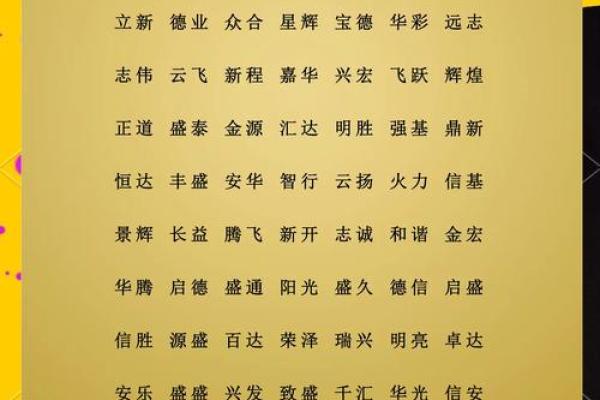 立新 德业 众合 星辉 宝德 华彩 远志
志伟 云飞 新程 嘉华 兴宏 飞跃 辉煌
正道 盛泰 金源 汇达 明胜 强基 鼎新
恒达 丰盛 安华 智行 云扬 火力 信基
景辉 长益 腾飞 新开 志诚 和谐 金宏
华腾 启德 盛通 阳光 盛久 德信 启盛
信胜 源盛 百达 荣泽 瑞兴 明亮 卓达
安乐 盛盛 兴发 致盛 千汇 华光 信安